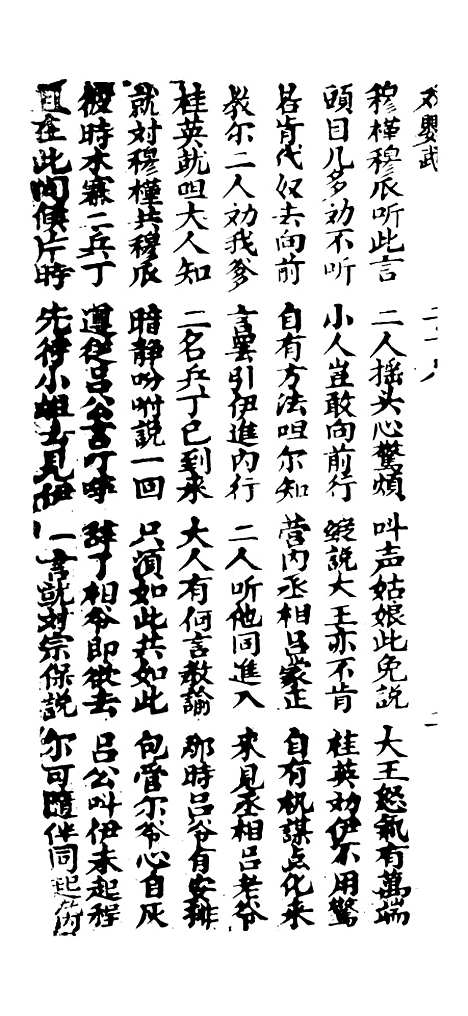 穆槿穆辰听此言 二人摇头心驚煩 叫声姑娘此免說 大王怒氣有萬端
頭目几多劝不听 小人豈敢向前行 說大王亦不肯 桂英劝伊不用驚
肯代奴去向前 自有方法呾尔知 营内丞相吕蒙正 自有机謀点化来
教尔二人劝我爹 言罢引伊進内行 二人听他同進入 来見丞相吕老爷
桂英就呾大人知 二名兵丁已到来 大人有何言教諭 那時吕爷有安排
就对穆槿共穆辰 暗静吩咐說一回 只須如此共如此 包管尔爷心自灰
彼時木寨二兵丁 遵從吕公言丁寧 辞了相爷即欲去 吕公叫伊未起程
且在此间候片時 先待小姐去見伊 一言就对宗保說 尔可隨伴同起